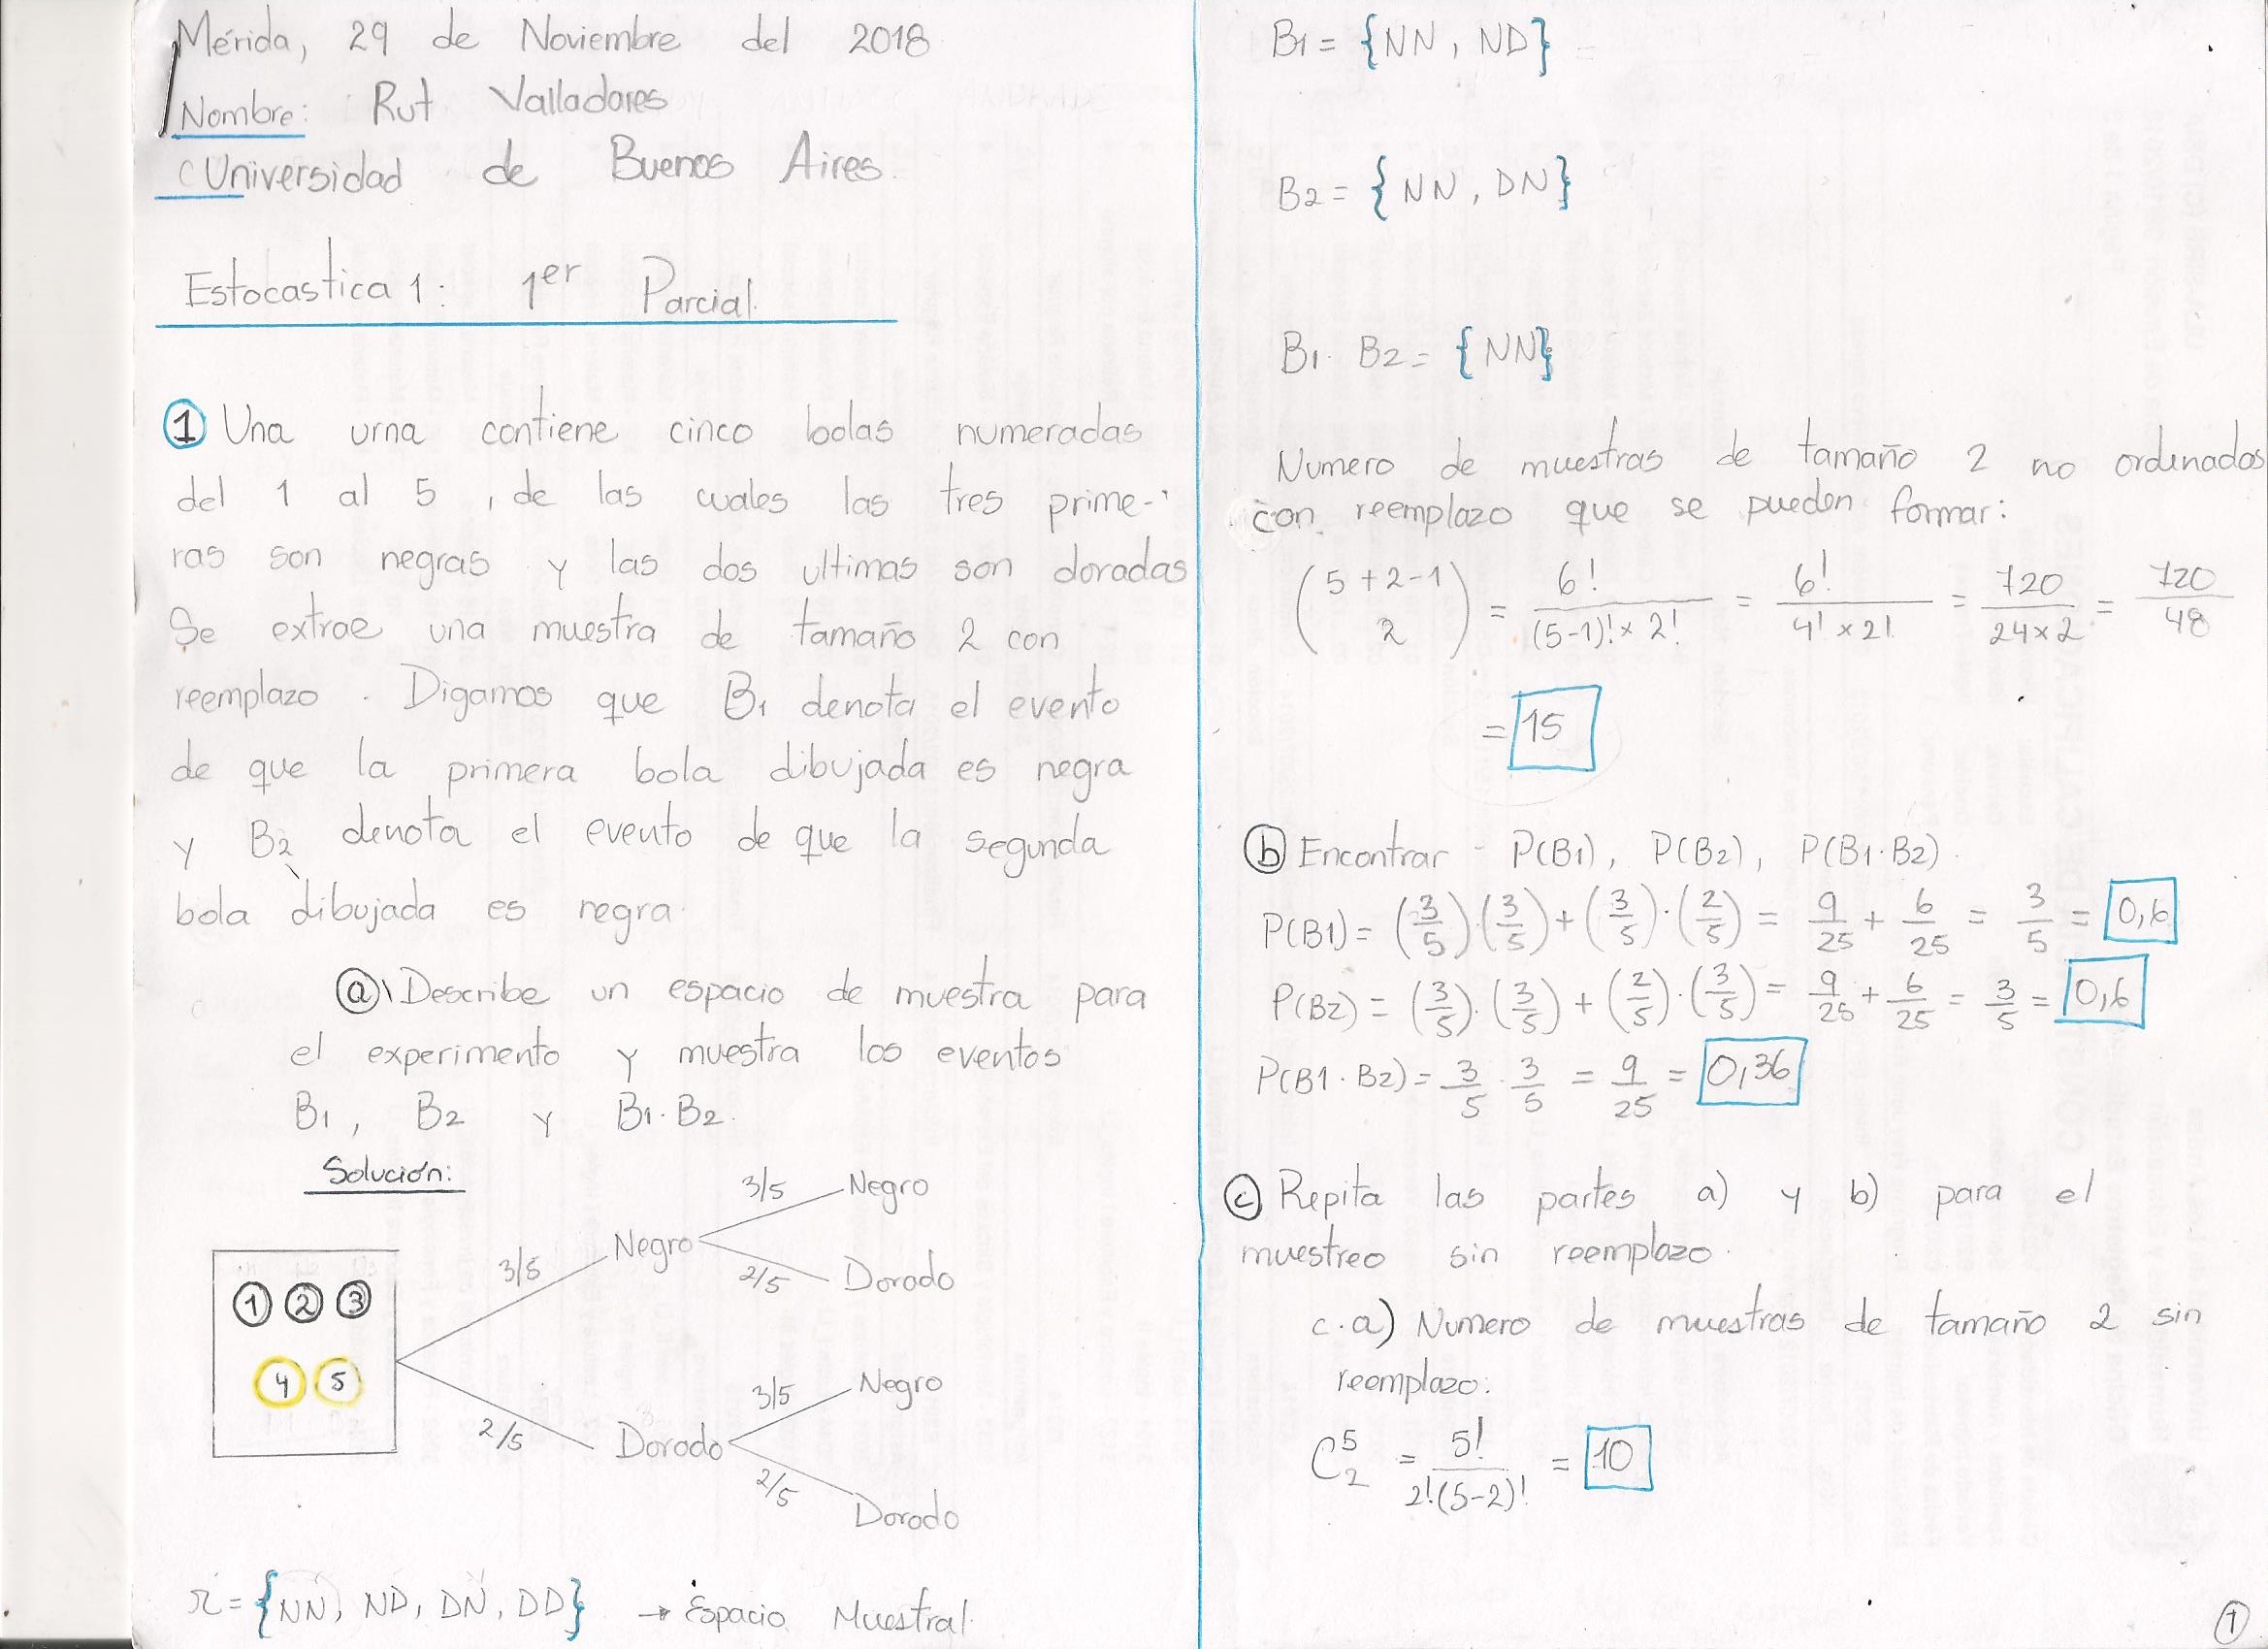 Mérida, 29 de Noviembre del 2018
Nombre: Rut Valladares
Universidad de Buenos Aires.
Estocastica 1: 1er Parcial.
① Una urna contiene cinco bolas numeradas
del 1 al 5, de las cuales las tres prime-
ras son negras y las dos ultimas son doradas
Se extrae una muestra de tamaño 2 con
reemplazo. Digamos que B1 denota el evento
de que la primera bola dibujada es negra
y B2 denota el evento de que la segunda
bola dibujada es negra.
ⓐ Describe un espacio de muestra para
el experimento y muestra los eventos
B1, B2 y B1·B2.
Solución:
① ② ③
④ ⑤
3/5 Negro
3/5 Negro
2/5 Dorado
2/5 Dorado
3/5 Negro
2/5 Dorado
Ω = {NN, ND, DN, DD} → Espacio Muestral
B1 = {NN, ND}
B2 = {NN, DN}
B1·B2 = {NN}
Numero de muestras de tamaño 2 no ordenados
con reemplazo que se pueden formar:
(5+2-1 / 2) = 6!/((5-1)! x 2!) = 6!/(4! x 2!) = 720/(24x2) = 720/48
= 15
ⓑ Encontrar P(B1), P(B2), P(B1·B2).
P(B1) = (3/5)·(3/5)+(3/5)·(2/5) = 9/25 + 6/25 = 3/5 = 0,6
P(B2) = (3/5)·(3/5)+(2/5)·(3/5) = 9/25 + 6/25 = 3/5 = 0,6
P(B1·B2) = 3/5 · 3/5 = 9/25 = 0,36
ⓒ Repita las partes a) y b) para el
muestreo sin reemplazo.
c.a) Numero de muestras de tamaño 2 sin
reemplazo:
C⁵₂ = 5!/(2!(5-2)!) = 10
①